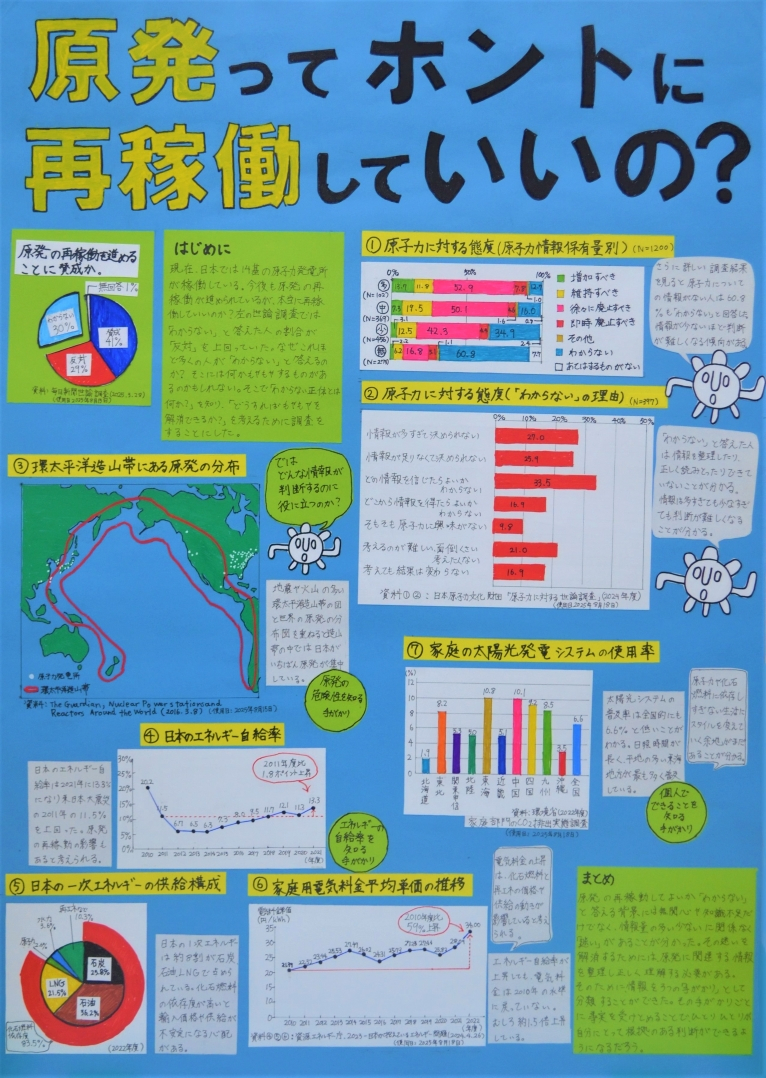 原発ってホントに
再稼働していいの？
原発の再稼働を進める
ことに賛成か。
無回答1%
わからない
30%
賛成
41%
反対
29%
はじめに
現在、日本では14基の原子力発電所
が稼働している。今後も原発の再稼
働が進められているが、本当に再稼
働していいのか？左の世論調査では
「わからない」と答えた人の割合が
「反対」を上回っていた。なぜこれほ
ど多くの人が「わからない」と答えるの
か？
① 原子力に対する態度（原子力情報保有量別）(N=1200)
0% 50% 100%
多
(N=102)
11.8 52.9
中
(N=369)
17.5 50.1
少
12.5 42.3 34.9
無
16.8 60.8
増加すべき
維持すべき
徐々に廃止すべき
即時廃止すべき
その他
わからない
あてはまるものがない
さらに詳しい調査結果
を見ると原子力について
の情報がない人は60.8
%も「わからない」と回答した。
情報が少ないほど判断
が難しくなる傾向がある。
② 原子力に対する態度（"わからない"の理由）(N=397)
0% 10% 20% 30% 40% 50%
情報が多すぎて決められない 27.0
情報が足りなくて決められない 25.9
どの情報を信じたらよいか
わからない 33.5
どこから情報を得たらよいか
わからない 16.9
そもそも原子力に興味がない 9.8
考えるのが難しい、面倒くさい
考えたくない 21.0
考えても結果は変わらない 16.9
資料①②：日本原子力文化財団「原子力に対する世論調査」(2024年度)
「わからない」と答えた人
は情報を整理したり、
正しく読みとったりできて
いないことが分かる。
情報は多すぎても少なすぎ
ても判断が難しくなる
ことが分かる。
③ 環太平洋造山帯にある原発の分布
原子力発電所
環太平洋造山帯
資料：The Guardian, Nuclear Power stations and
Reactors Around the World (2016.3.8)
では
どんな情報が
判断するのに
役に立つのか？
地震や火山の多い
環太平洋造山帯の図
と世界の原発の分
布図を重ねると造山
帯の中では日本が
いちばん原発が集中
している。
原発の
危険性を知る
手がかり
④ 日本のエネルギー自給率
30%
25%
20%
15%
10%
5%
0%
20.2 11.5
12.1 11.3 13.3
2010 2011 2012 2013 2014 2015 2016 2017 2018 2019 2020 2021
(年度)
2011年度比
1.8ポイント上昇
日本のエネルギー自
給率は2021年に13.3%
になり東日本大震災
の2011年の11.5%
を上回った。原発
の再稼動の影響も
あると考えられる。
エネルギーの
自給率を
知る
手がかり
⑤ 日本の一次エネルギーの供給構成
再エネなど
10.3%
水力
3.6%
石炭
25.8%
LNG
21.5%
石油
36.2%
化石燃料
依存度
83.5%
(2022年度)
日本の1次エネルギー
は約8割が石炭
石油LNGで占めら
れている。化石燃料
の依存度が高いと
輸入価格や供給が
不安定になる心配
がある。
⑥ 家庭用電気料金平均単価の推移
電気料金単価
(円/kWh)
35
30
25
20
15
10
5
0
34.00
2010 2011 2012 2013 2014 2015 2016 2017 2018 2019 2020 2021 2022
(年度)
2010年度比
59%上昇
電気料金の上昇
は、化石燃料や
再エネの価格や
供給の動きが
影響していると考え
られる。
エネルギー自給率が
上昇しても、電気料
金は2010年の水準
に戻っていない。
むしろ約1.5倍上昇
している。
⑦ 家庭の太陽光発電システムの使用率
(%)
12
10
8
6
4
2
0
1.9 8.2 5.3 5.0 10.8 5.1 10.1 9.2 8.5 3.5 6.6
北海道 東北 関東甲信 北陸 東海 近畿 中国 四国 九州 沖縄 全国
資料：環境省(2022年度)
家庭部門のCO2排出実態調査
太陽光システムの
普及率は全国的にも
6.6%と低いことが
わかる。日照時間が
長く、平地の多い東海
地方が最も多く普及
している。
原子力や化石
燃料に依存し
すぎない生活に
スタイルを変えて
いく余地がまだ
あることが分かる。
個人で
できることを
知る
手がかり
まとめ
原発の再稼働してよいか「わからない」
と答える背景には無関心や知識不足だ
けでなく、情報量の多い少ないに関係なく
「迷い」があることが分かった。その迷いを
解消するためには原発に関連する情報
を整理し正しく理解する必要がある。
そのため情報を「5つの手がかり」として
分類することができた。その手がかりごと
に事実を受けとめることでひとりひとりが
自分にとって根拠のある判断ができるよ
うになるだろう。